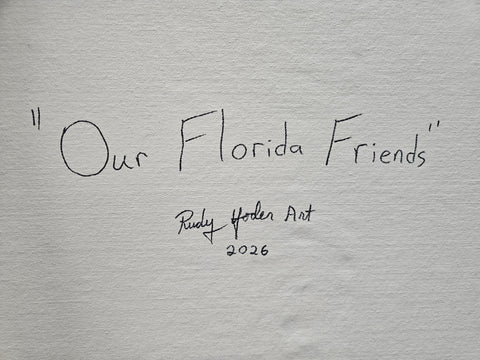 "Our Florida Friends"
Rudy Yoder Art
2026